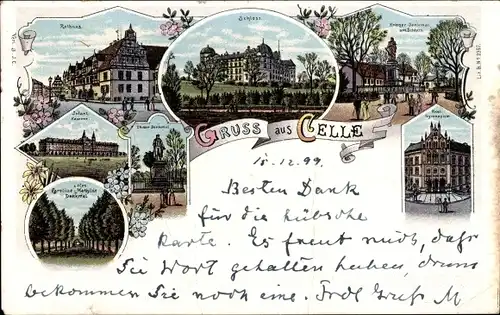 Rathaus
Schloss
Krieger-Denkmal
Infant. Kaserne
Thaer Denkmal
Kgl. Gymnasium
Caroline Mathilde
Denkmal
GRUSS aus CELLE
11.12.99
Besten Dank
für die hübsche
Karte. Es freut mich, daß
Sie Wort gehalten haben, drum
bekommen Sie noch eine. Frdl Gruß M